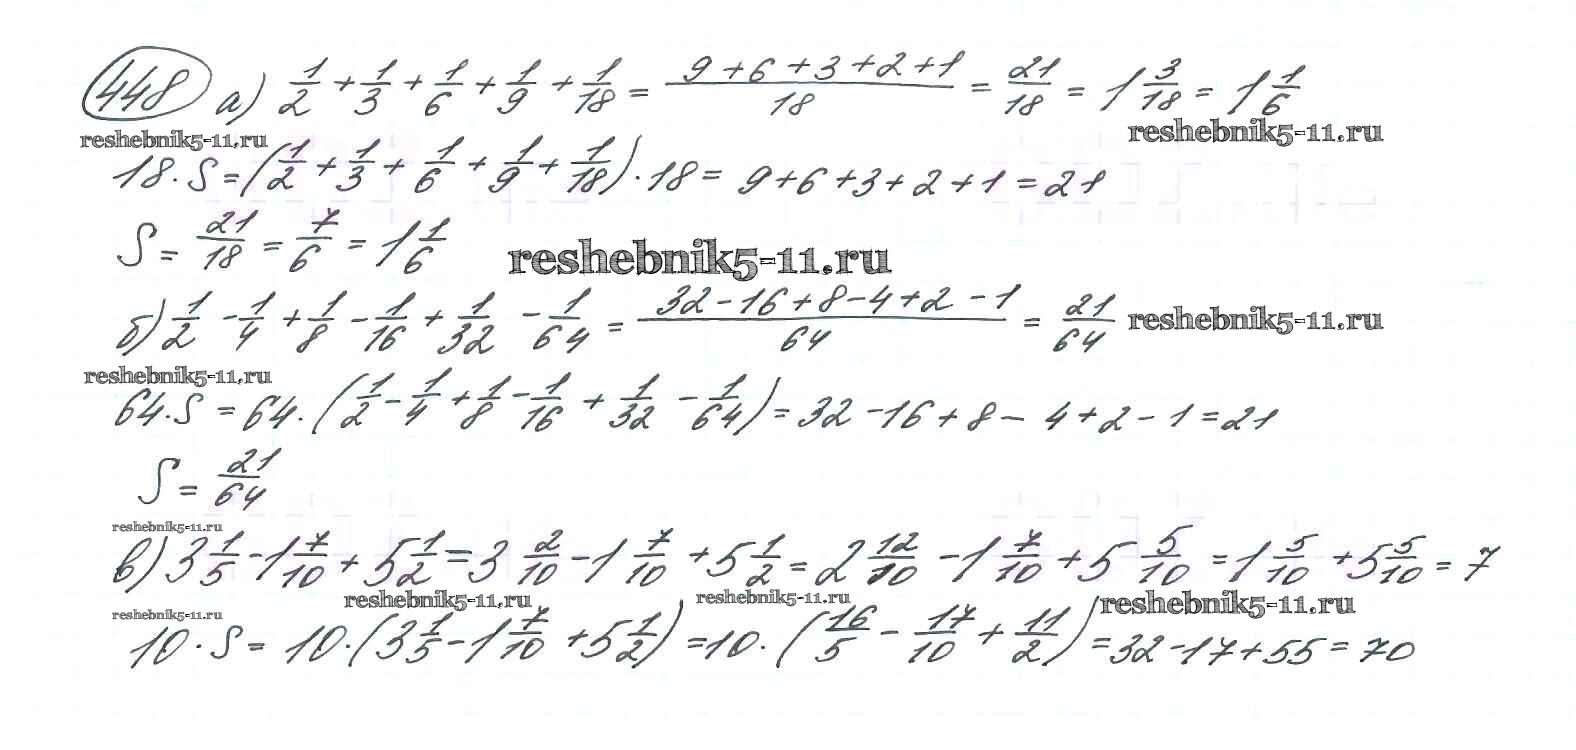 448 а) 1/2 + 1/3 + 1/6 + 1/9 + 1/18 = (9+6+3+2+1)/18 = 21/18 = 1 3/18 = 1 1/6
reshebnik5-11.ru reshebnik5-11.ru
18·S = (1/2 + 1/3 + 1/6 + 1/9 + 1/18)·18 = 9+6+3+2+1 = 21
S = 21/18 = 7/6 = 1 1/6 reshebnik5-11.ru
б) 1/2 - 1/4 + 1/8 - 1/16 + 1/32 - 1/64 = (32-16+8-4+2-1)/64 = 21/64 reshebnik5-11.ru
reshebnik5-11.ru
64·S = 64·(1/2 - 1/4 + 1/8 - 1/16 + 1/32 - 1/64) = 32-16+8-4+2-1 = 21
S = 21/64
reshebnik5-11.ru
в) 3 1/5 - 1 7/10 + 5 1/2 = 3 2/10 - 1 7/10 + 5 1/2 = 2 12/10 - 1 7/10 + 5 5/10 = 1 5/10 + 5 5/10 = 7
reshebnik5-11.ru reshebnik5-11.ru reshebnik5-11.ru reshebnik5-11.ru
10·S = 10·(3 1/5 - 1 7/10 + 5 1/2) = 10·(16/5 - 17/10 + 11/2) = 32-17+55 = 70